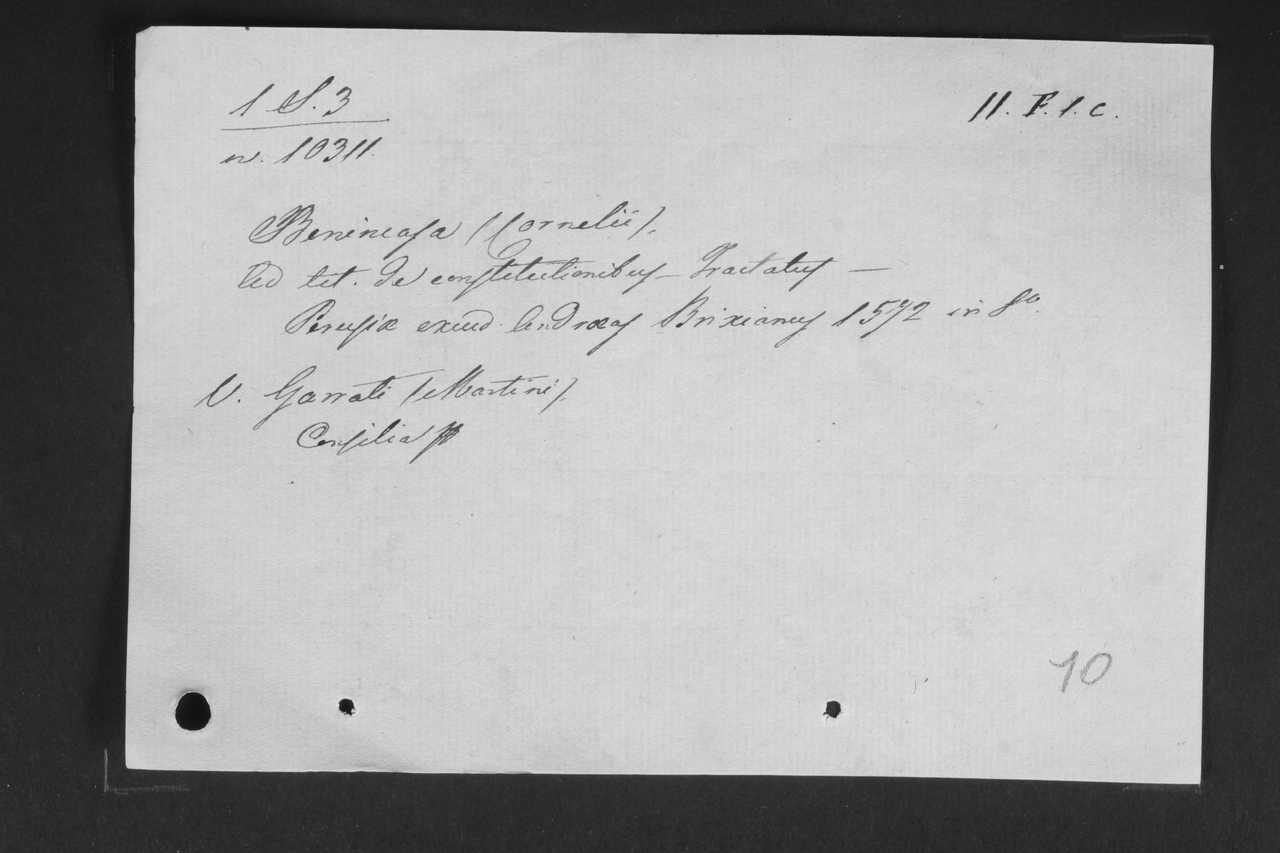 1 S. 3
11. F. 1. c.
n. 10311.
Benincasa (Cornelii).
Ad tit. de constitutionibus – Tractatus –
Perusiæ excud. Andreas Brixianus 1572 in 8°.
V. Garrati (Martini).
Consilia
10